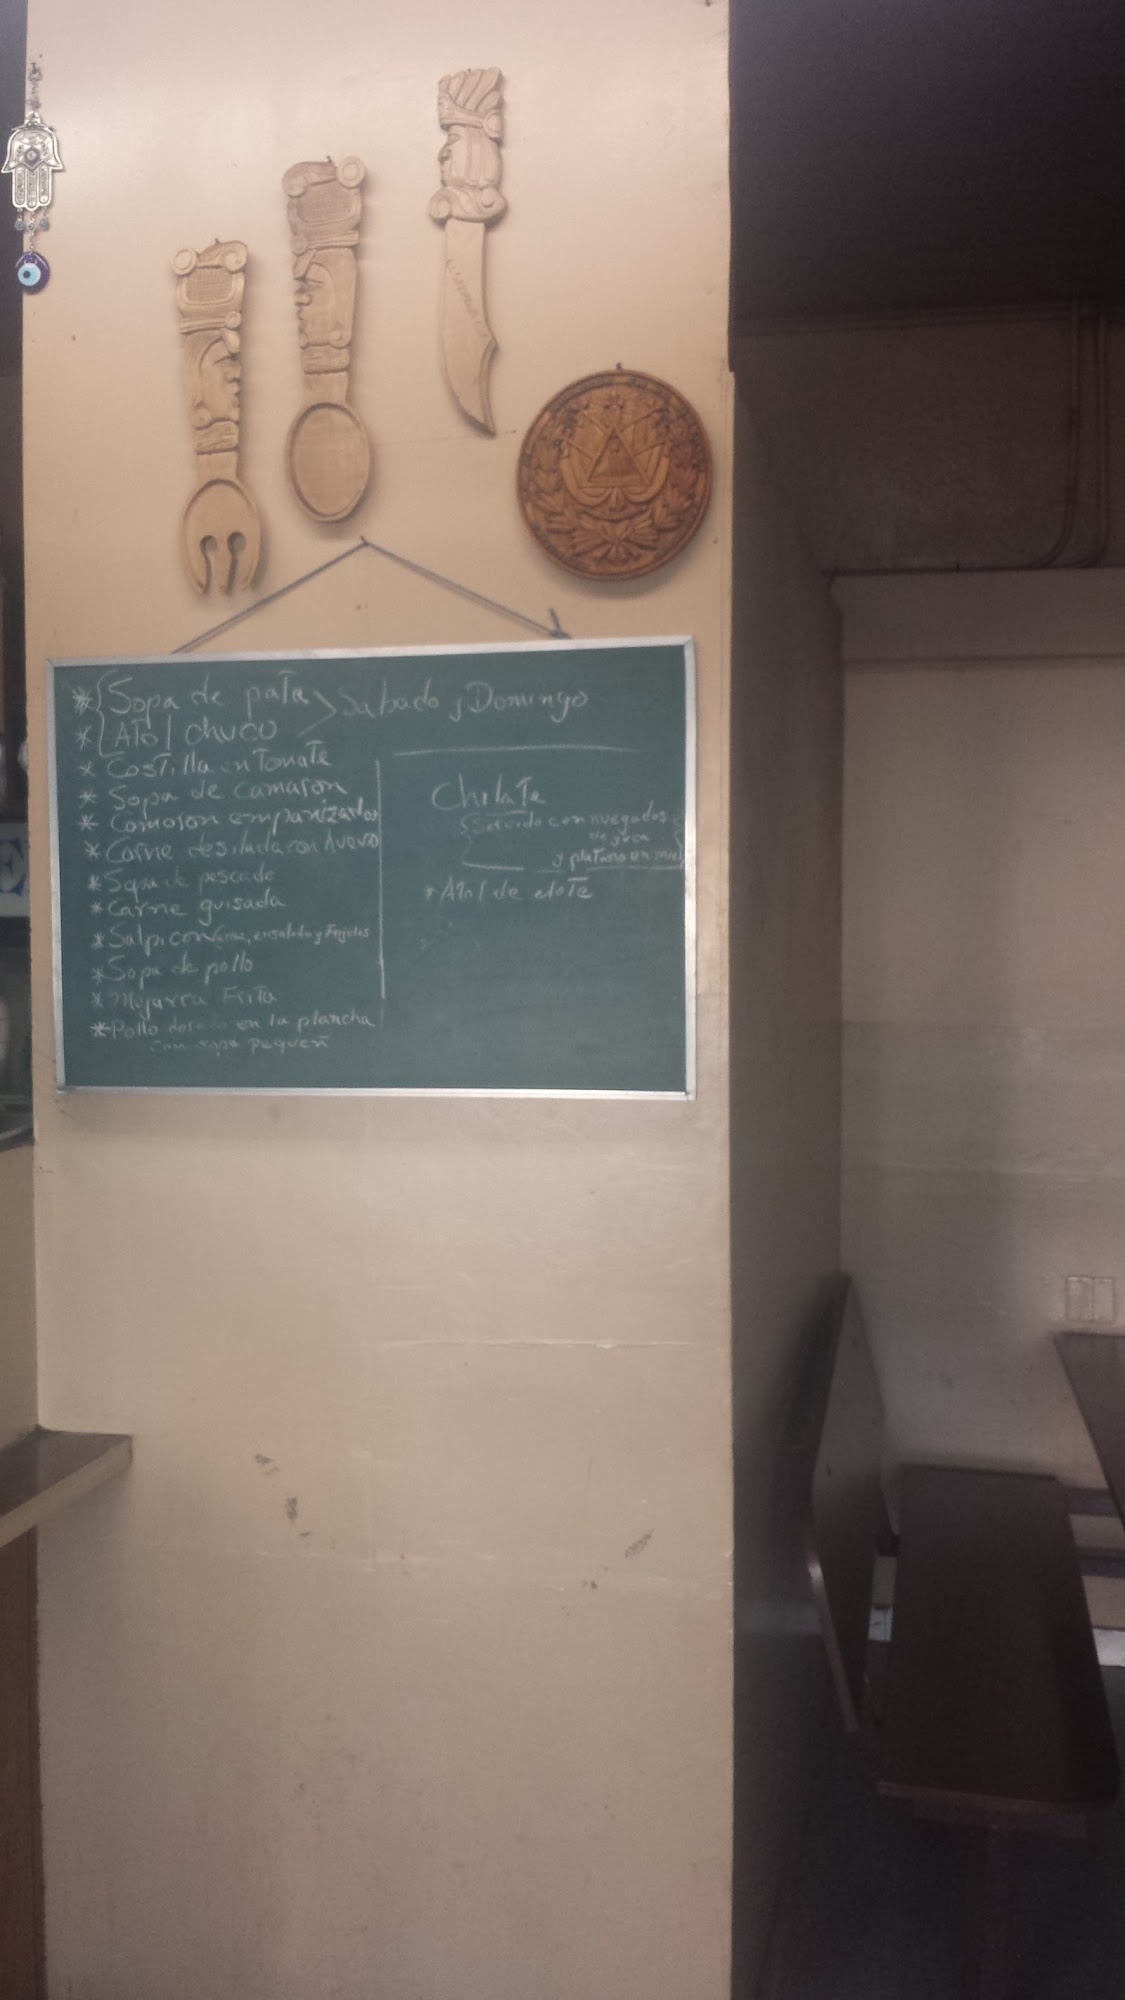 * Sopa de pata > Sabado y Domingo
* Atol chuco
* Costilla en Tomate
* Sopa de camaron
* Camaron empanizados
* Carne desilada con
* Sopa de pescado
* Carne guisada
* Salpicon ensalada y Frijoles
* Sopa de pollo
* Mojarra Frita
* Pollo en la plancha
con sopa pequeñ
Chilate
Servido con nuegados
de yuca
y platano en miel
* Atol de elote